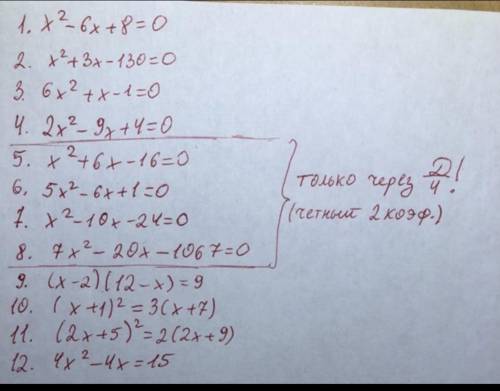 1. x²-6x+8=0
2. x²+3x-130=0
3. 6x²+x-1=0
4. 2x²-9x+4=0
5. x²+6x-16=0
6. 5x²-6x+1=0
7. x²-10x-24=0
8. 7x²-20x-1067=0
только через D/4!
(четный 2 коэф.)
9. (x-2)(12-x)=9
10. (x+1)²=3(x+7)
11. (2x+5)²=2(2x+9)
12. 4x²-4x=15